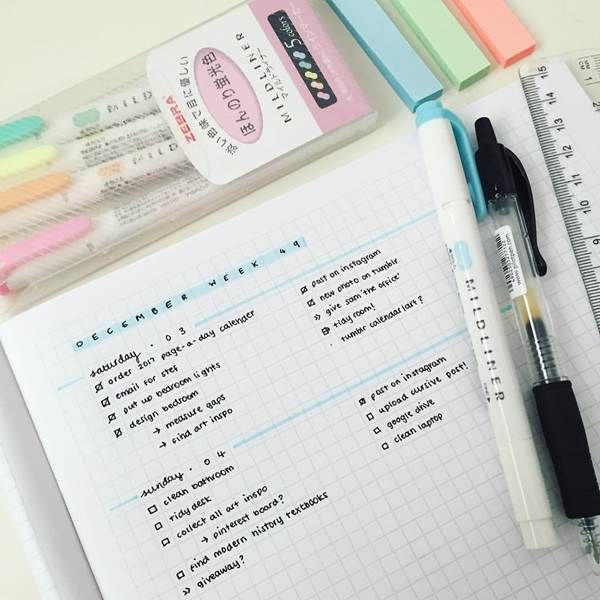 ZEBRA
やさしい色味で目に優しい
ほんのり蛍光色
MILDLINER
マイルドライナー
5 colors
MILDLINER
15
14
13
12
11
10
9
DECEMBER WEEK 49
saturday . 03
order 2017 page-a-day calender
email for stef
put up bedroom lights
design bedroom
→ measure gaps
→ find art inspo
post on instagram
new photo on tumblr
>> give sam 'the office'
tidy room!
. tumblr calendar/art?
sunday . 04
clean bathroom
tidy desk
collect all art inspo
→ pinterest board?
find modern history textbooks
>> giveaway?
post on instagram
upload cursive post!
google drive
clean laptop